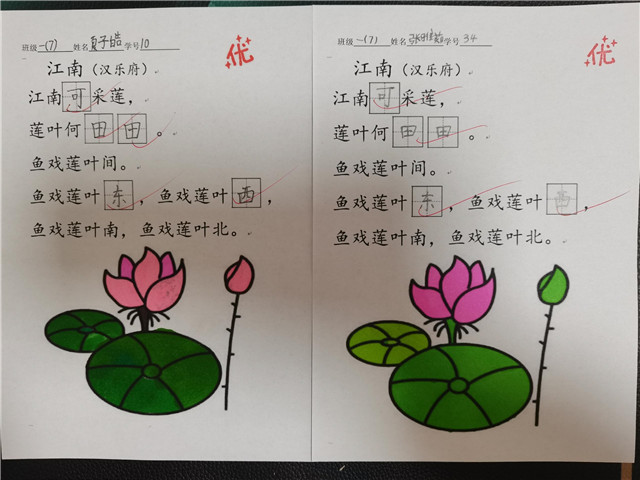 班级 一(7) 姓名 夏子皓 学号 10
优
江南（汉乐府）
江南可采莲，
莲叶何田田。
鱼戏莲叶间。
鱼戏莲叶东，鱼戏莲叶西，
鱼戏莲叶南，鱼戏莲叶北。
班级 一(7) 姓名 张 学号 34
优
江南（汉乐府）
江南可采莲，
莲叶何田田。
鱼戏莲叶间。
鱼戏莲叶东，鱼戏莲叶西，
鱼戏莲叶南，鱼戏莲叶北。